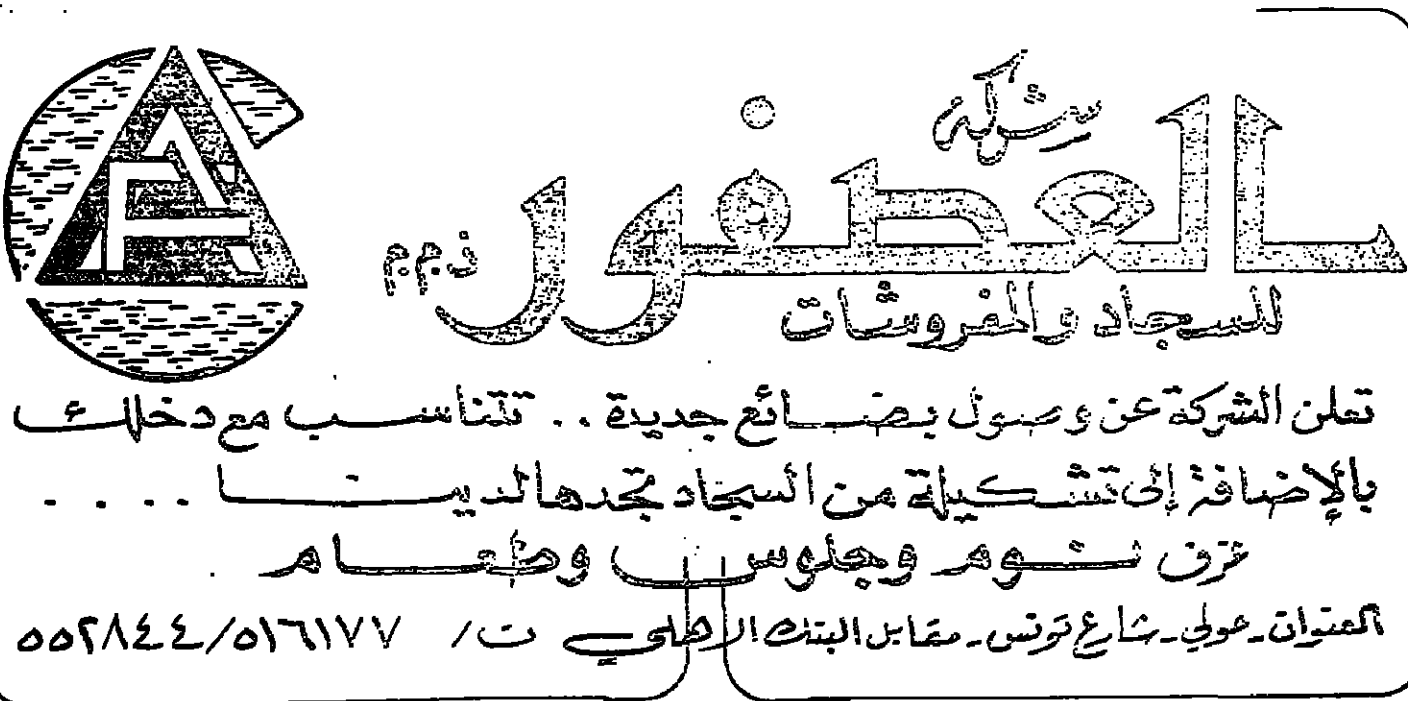 شركة
العصفور ذ.م.م
للسجاد والمفروشات
تعلن الشركة عن وصول بضائع جديدة .. تتناسب مع دخلك
بالإضافة إلى تشكيلة من السجاد تجدها لدينا ....
غرف نوم وجلوس وطعام .
العنوان - حولي - شارع تونس - مقابل البنك الأهلي ت / ٥١٦١٧٧/٥٥٢٨٤٤